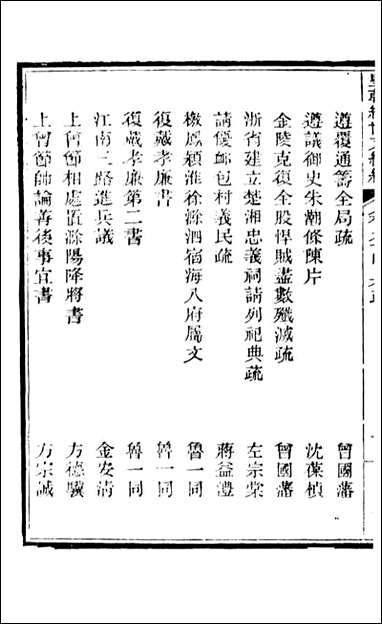 遵覆通籌全局疏　曾國藩
遵議御史朱潮條陳片　沈葆楨
金陵克復全股悍賊盡數殲滅疏　曾國藩
浙省建立楚湘忠義祠請列祀典疏　左宗棠
請優卹包村義民疏　蔣益澧
檄鳳潁淮徐滁泗宿海八府屬文　魯一同
復戴孝廉書　魯一同
復戴孝廉第二書　魯一同
江南三路進兵議　金安清
上曾節相處置滁陽降將書　方德驥
上曾節帥論善後事宜書　方宗誠